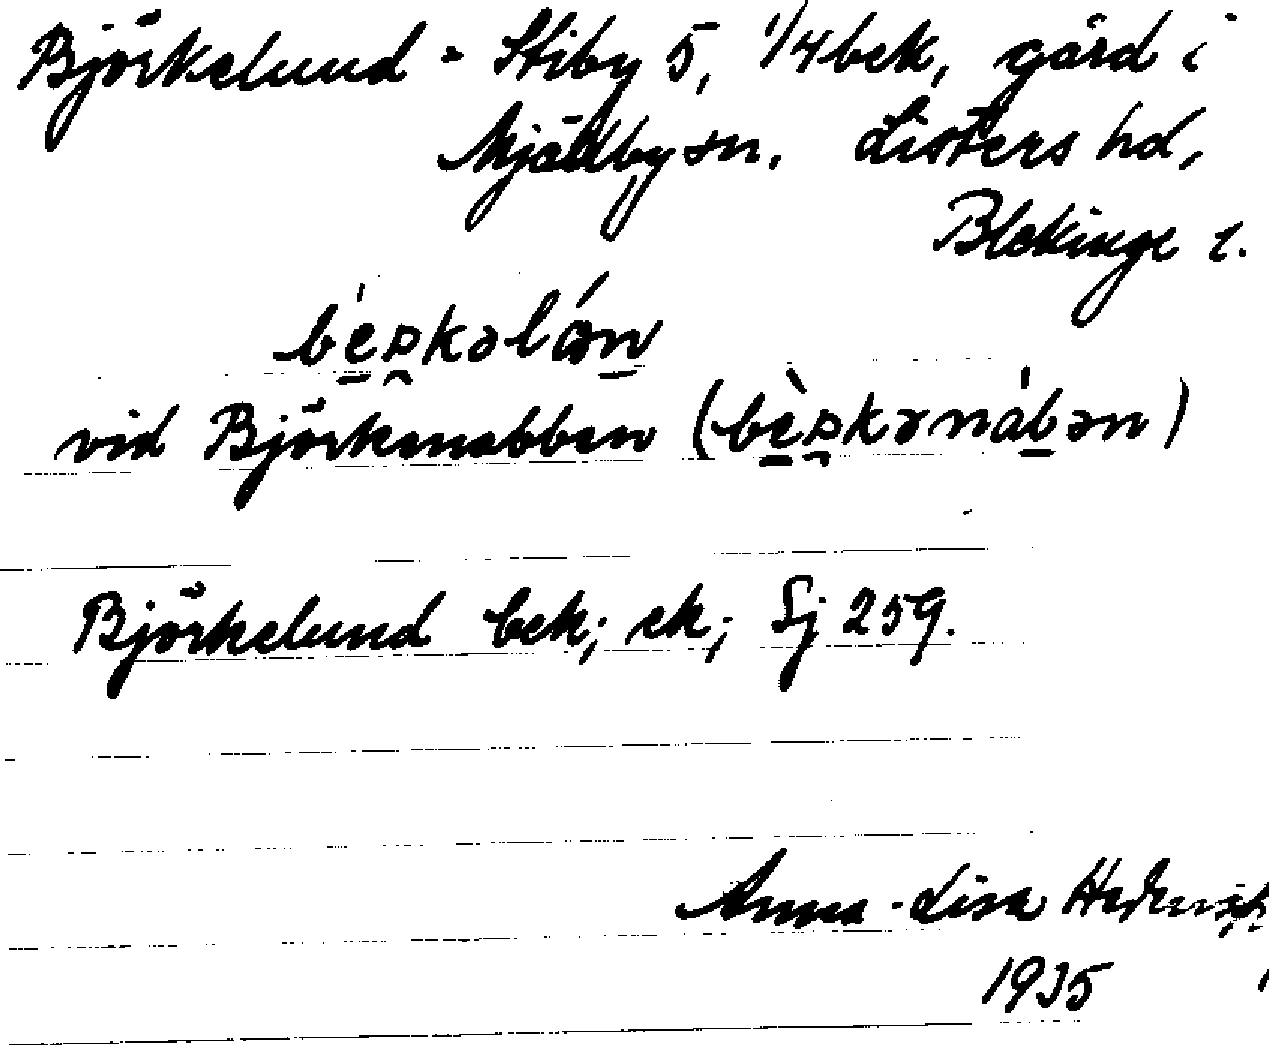 Björkelund - Stiby 5, 1/4 bek, gård i
Mjällby sn. Listers hd,
Blekinge l.
bèʂkəlón
vid Björkenabben (bèʂkənàbən)
Björkelund bek; ek; Sj 259.
Anna-Lisa
1935